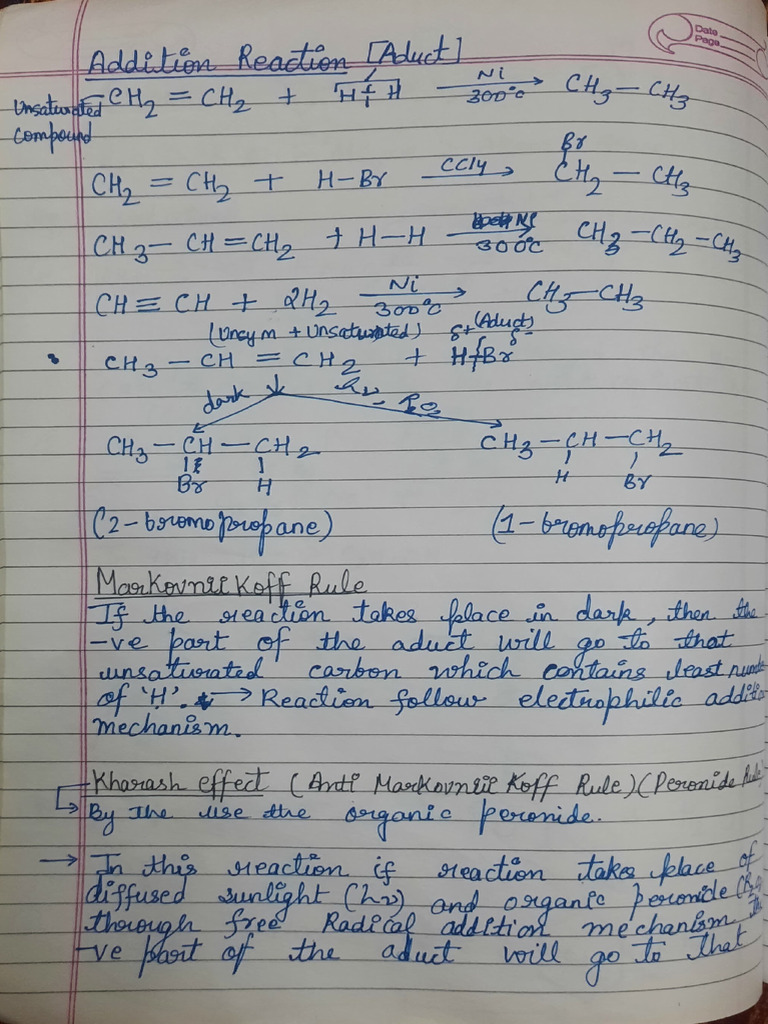 Date
Page
Addition Reaction [Aduct]
Unsaturated compound
CH2 = CH2 + H-H Ni 300°c → CH3 - CH3
CH2 = CH2 + H-Br CCl4 → Br CH2 - CH3
CH3 - CH = CH2 + H-H Ni 300°C → CH3 - CH2 - CH3
CH ≡ CH + 2H2 Ni 300°c → CH3 - CH3
(Unsym + Unsaturated) (Aduct)
δ+ δ-
CH3 - CH = CH2 + H-Br
dark hν, R2O2
CH3 - CH - CH2 CH3 - CH - CH2
Br H H Br
(2-bromopropane) (1-bromopropane)
Markovnikoff Rule
If the reaction takes place in dark, then the
-ve part of the aduct will go to that
unsaturated carbon which contains least
of 'H'. → Reaction follow electrophilic
mechanism.
Kharash effect (Anti Markovnikoff Rule) (Peroxide
By the use the organic peroxide.
→ In this reaction if reaction takes place of
diffused sunlight (hν) and organic peroxide
through free Radical addition mechanism
-ve part of the aduct will go to that